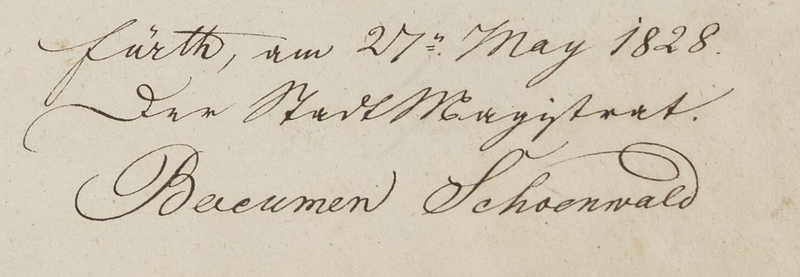 Fürth, am 27n. May 1828.
Der StadtMagistrat.
Baeumen Schoenwald